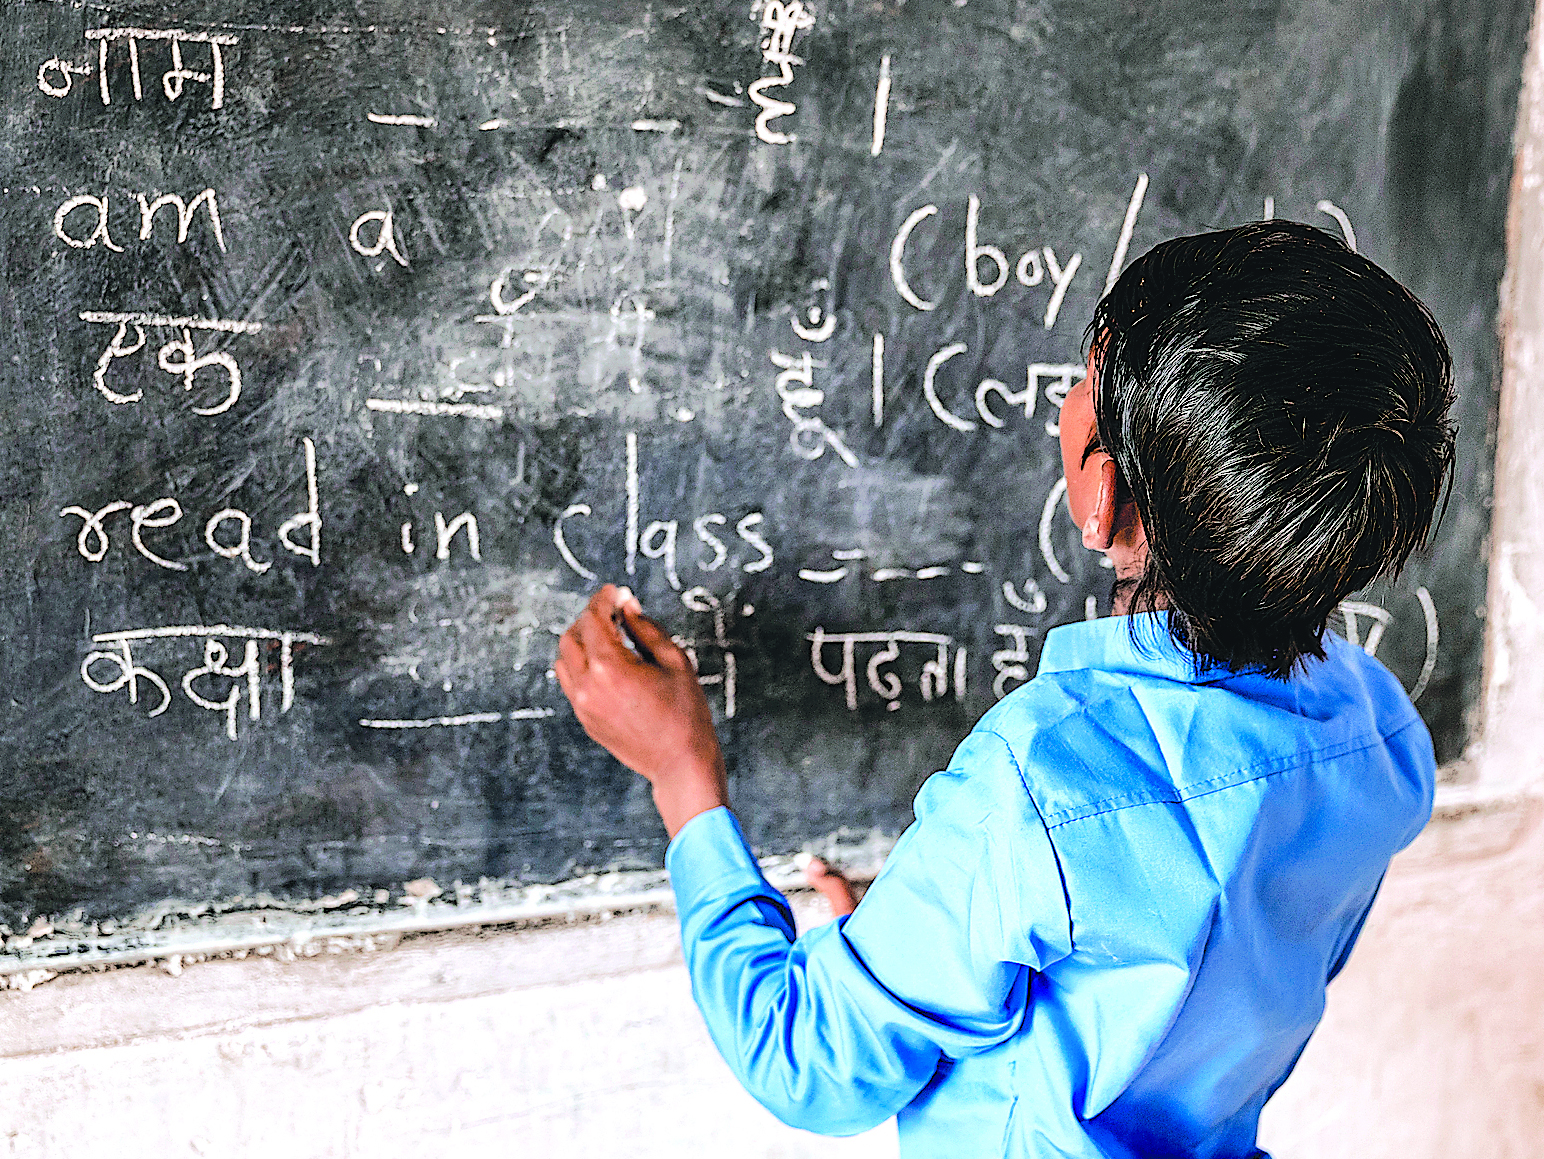 नाम _ _ _ _ है |
am a (boy/
एक _ _ हूँ | (लड़
read in class _ _ _ _ (
कक्षा _ _ में पढ़ता हूँ